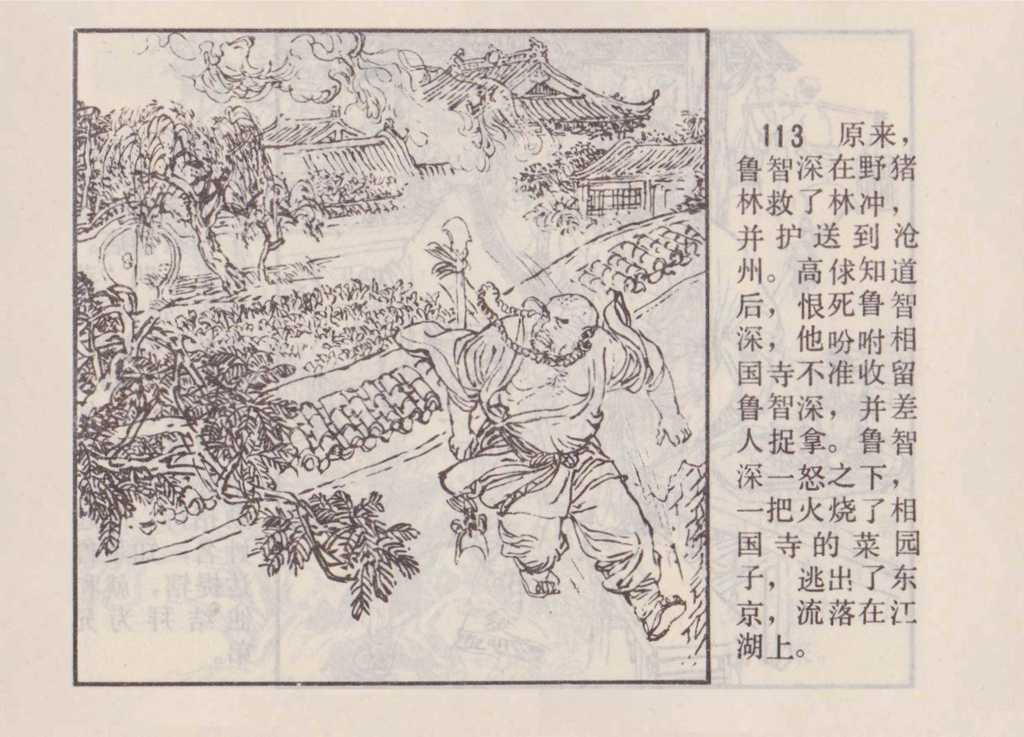 113 原来，
鲁智深在野猪
林救了林冲，
并护送到沧
州。高俅知道
后，恨死鲁智
深，他吩咐相
国寺不准收留
鲁智深，并差
人捉拿。鲁智
深一怒之下，
一把火烧了相
国寺的菜园
子，逃出了东
京，流落在江
湖上。